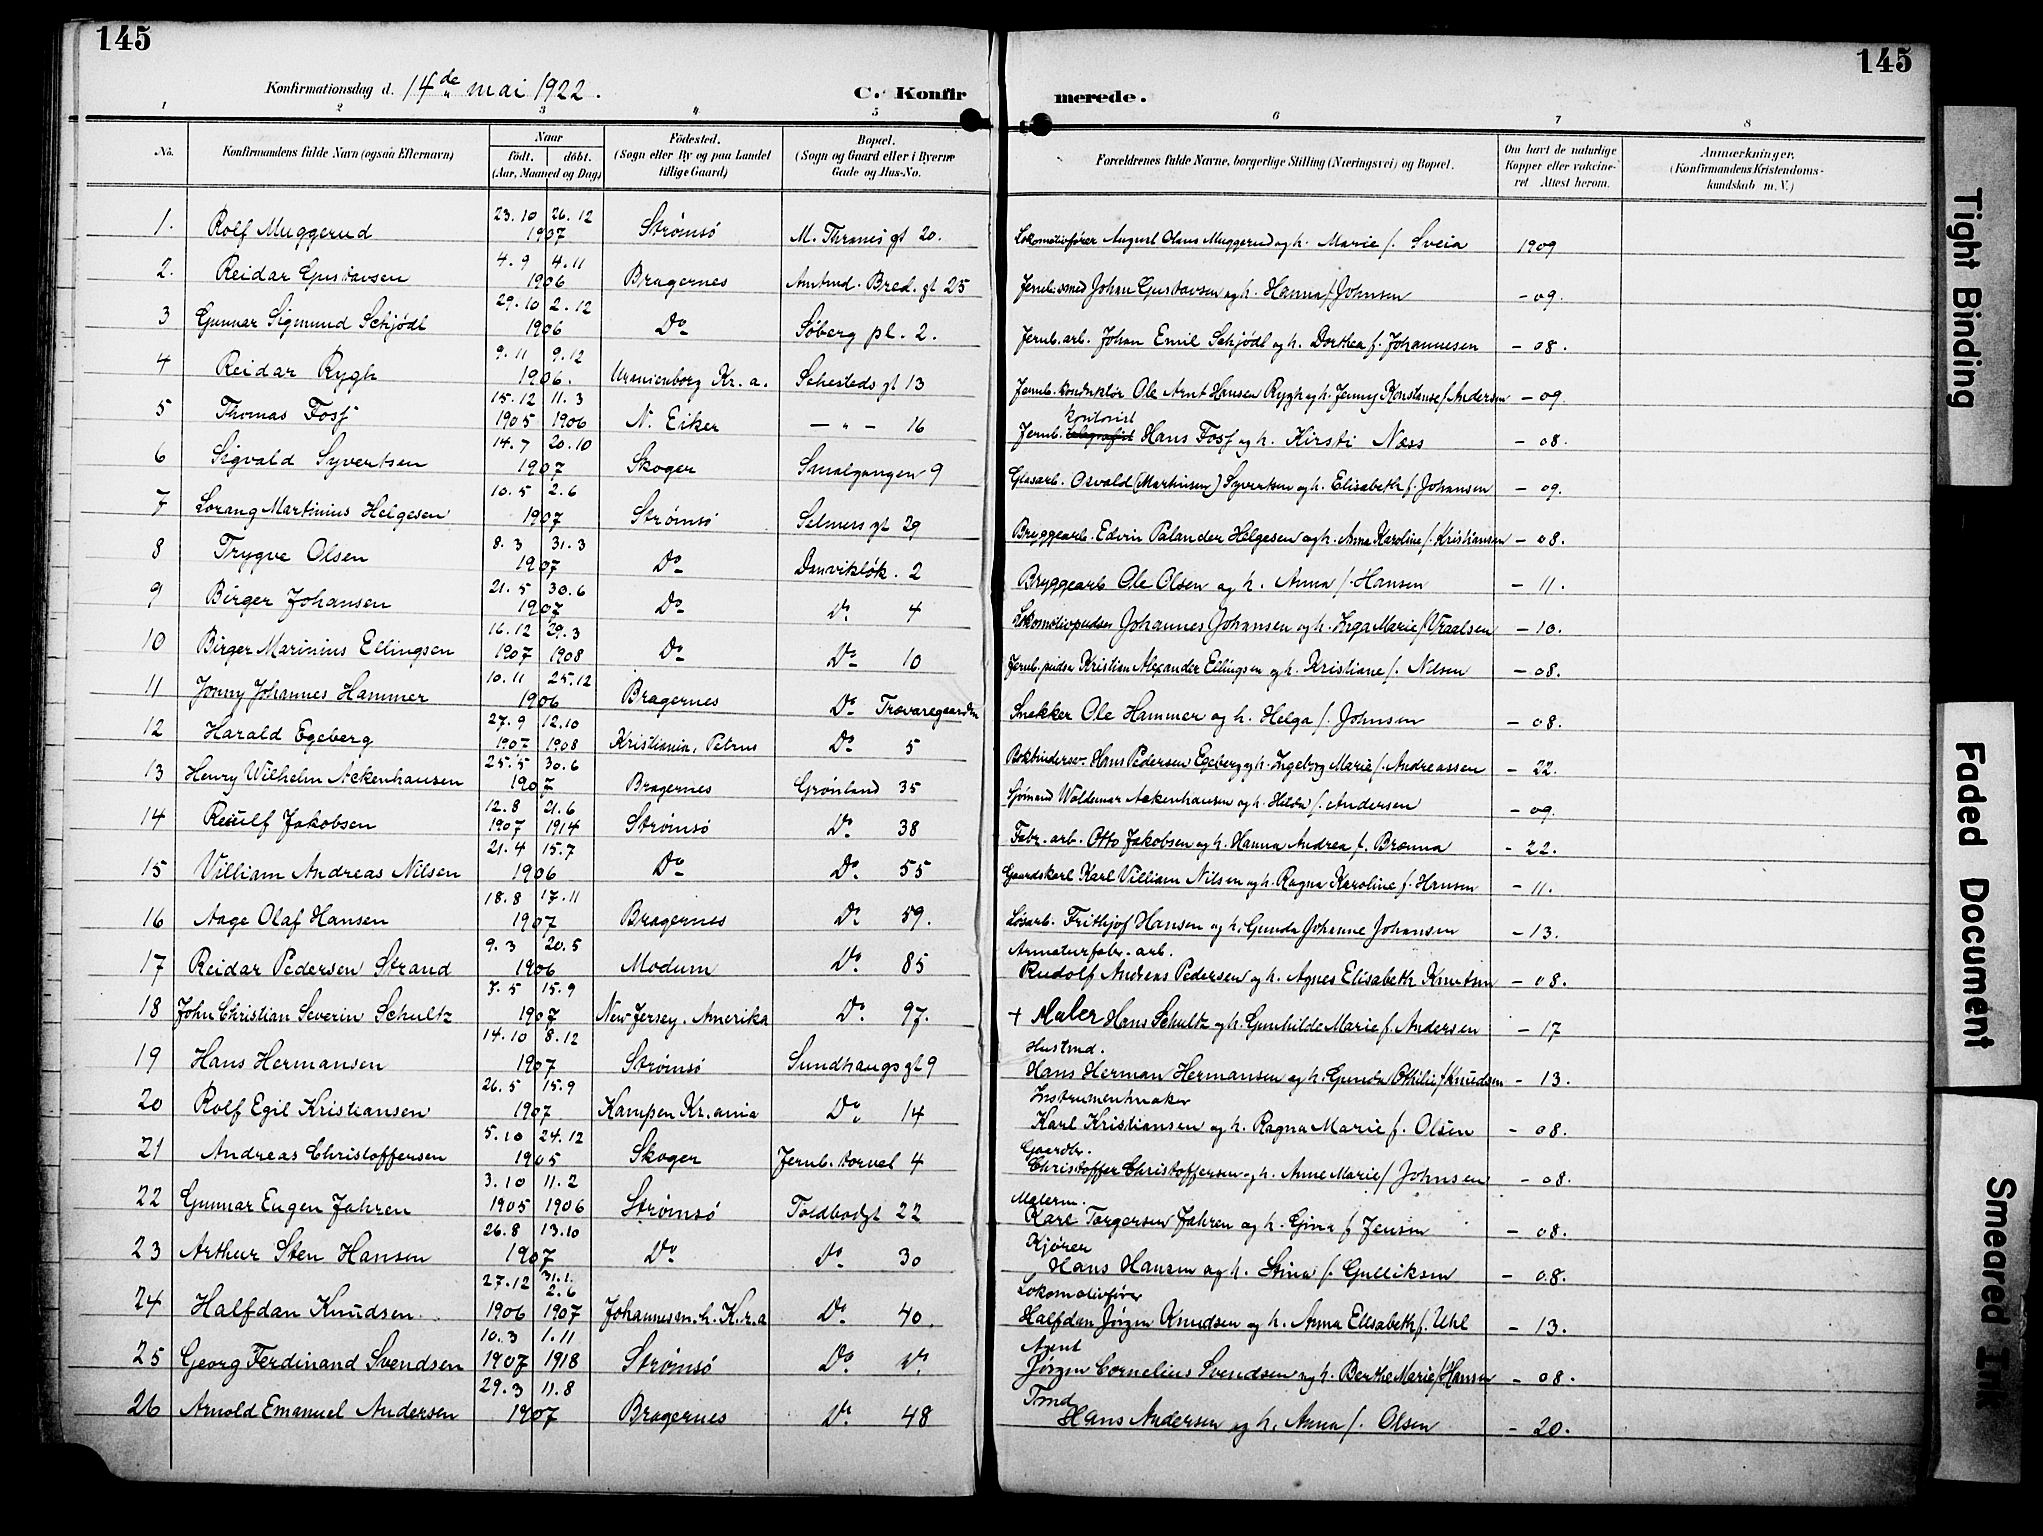 145
145
Konfirmationsdag d. 14de mai 1922.
C. Konfirmerede.
1 2 3 4 5 6 7 8
No.
Konfirmandens fulde Navn (ogsaa Efternavn)
Naar
födt. döbt.
(Aar, Maaned og Dag)
Födested.
(Sogn eller By og paa Landet
tillige Gaard)
Bopæl.
(Sogn og Gaard eller i Byerne
Gade og Hus-No.
Forældrenes fulde Navne, borgerlige Stilling (Næringsvei) og Bopæl.
Om havt de naturlige
Kopper eller vakcine-
ret Attest herom.
Anmærkninger.
(Konfirmandens Kristendoms-
kundskab m. V.)
1. Rolf Muggerud 23.10 26.12 1907 Strømsø M. Thranes gt 20. Lokomotivfører August Olaus Muggerud og h. Marie f. Sveia 1909
2. Reidar Gustavsen 4.9 4.11 1906 Bragernes Amtmd. Bred. gt 25 Jernb.smed Johan Gustavsen og h. Hanna f. Johnsen - 09.
3 Gunnar Sigmund Schjödt 29.10 2.12 1906 Do Søberg pl. 2. Jernb. arb. Johan Emil Schjödt og h. Dorthea f. Johannesen - 08.
4 Reidar Rygh 9.11 9.12 1906. Uranienborg Kr.a. Schesteds gt 13 Jernb. konduktør Ole Arnt Hansen Rygh og h. Jenny Konstanse f. Andersen - 09.
5 Thomas Foss 15.12 1905 11.3 1906 N. Eiker — " — 16 Jernb. kontorist Hans Foss og h. Kirsti Næss - 08.
6 Sigvald Syvertsen 14.7 20.10 1907 Skoger Smalgangen 9 Glasarb. Osvald (Martinsen) Syvertsen og h. Elisabeth f. Johansen - 09.
7 Lorang Martinius Helgesen 10.5 2.6 1907 Strømsø Selmers gt 29 Bryggearb. Edvin Palander Helgesen og h. Anna Karoline f. Kristiansen - 08.
8 Trygve Olsen 8.3 31.3 1907 Do Danvikløk. 2 Bryggearb Ole Olsen og h. Anna f. Hansen - 11.
9 Birger Johansen 21.5 30.6 1907 Do Do 4 Lokomotivpudser Johannes Johansen og h. Inga Marie f. Vraalsen - 10.
10 Birger Marinius Ellingsen 16.12 1907 29.3 1908 Do Do 10 Jernb. pudser Kristian Alexander Ellingsen og h. Kristiane f. Nilsen - 08.
11 Jonny Johannes Hammer 10.11 25.12 1906 Bragernes Do Trævaregaarden Snekker Ole Hammer og h. Helga f. Johnsen - 08.
12 Harald Egeberg 27.9 1907 12.10 1908 Kristiania, Petrus Do 5 Bokbindersv. Hans Pedersen Egeberg og h. Ingeborg Marie f. Andreassen - 22.
13 Henry Wilhelm Ackenhausen 25.5 30.6 1907 Bragernes Grønland 35 Sjømand Woldemar Ackenhausen og h. Hilda f. Andersen - 09.
14 Reulf Jakobsen 12.8 1907 21.6 1914 Strømsø Do 38 Fabr. arb. Otto Jakobsen og h. Hanna Andrea f. Brænna - 22.
15 Villiam Andreas Nilsen 21.4 15.7 1906 Do Do 55 Gaardskarl Karl Villiam Nilsen og h. Ragna Karoline f. Hansen - 11.
16 Aage Olaf Hansen 18.8 17.11 1907 Bragernes Do 59. Løsarb. Frithjof Hansen og h. Gunda Johanne Johansen - 13.
17 Reidar Pedersen Strand 9.3 20.5 1906 Modum Do 85 Armaturfabr. arb. Rudolf Andreas Pedersen og h. Agnes Elisabeth Knutsen - 08.
18 John Christian Severin Schultz 7.5 15.9 1907 New Jersey. Amerika Do 97. + Maler Hans Schultz og h. Gunhilde Marie f. Andersen - 17
19 Hans Hermansen 14.10 8.12 1907 Strømsø Sundhaugs gt 9 Hustmd. Hans Herman Hermansen og h. Gunda Othilie f. Knudsen - 13.
20 Rolf Egil Kristiansen 26.5 15.9 1907 Kampen Kr.ania Do 14 Instrumentmaker Karl Kristiansen og h. Ragna Marie f. Olsen - 08.
21 Andreas Christoffersen 5.10 24.12 1905 Skoger Jernb. torvet 4 Gaardbr. Christoffer Christoffersen og h. Anne Marie f. Johnsen - 08.
22 Gunnar Eugen Jahren 3.10 1905 11.2 1906 Strømsø Toldbodgt 22 Malerm. Karl Torgersen Jahren og h. Gina f. Jensen - 08.
23 Arthur Sten Hansen 26.8 13.10 1907 Do Do 30 Kjører Hans Hansen og h. Stina f. Gulliksen - 08.
24 Halfdan Knudsen. 27.12 1906 31.1. 2.6 1907 Johannes m.h. Kr.a Do 40. Lokomotivfører Halfdan Jørgen Knudsen og h. Anna Elisabeth f. Uhl - 13.
25 Georg Ferdinand Svendsen 10.3 1907 1.11 1918 Strømsø Do Do Agent Jørgen Cornelius Svendsen og h. Berthe Marie f. Hansen - 08.
26 Arnold Emanuel Andersen 29.3 11.8 1907 Bragernes Do 48 Tmd Hans Andersen og h. Anna f. Olsen - 20.
Tight Binding
Faded Document
Smeared Ink